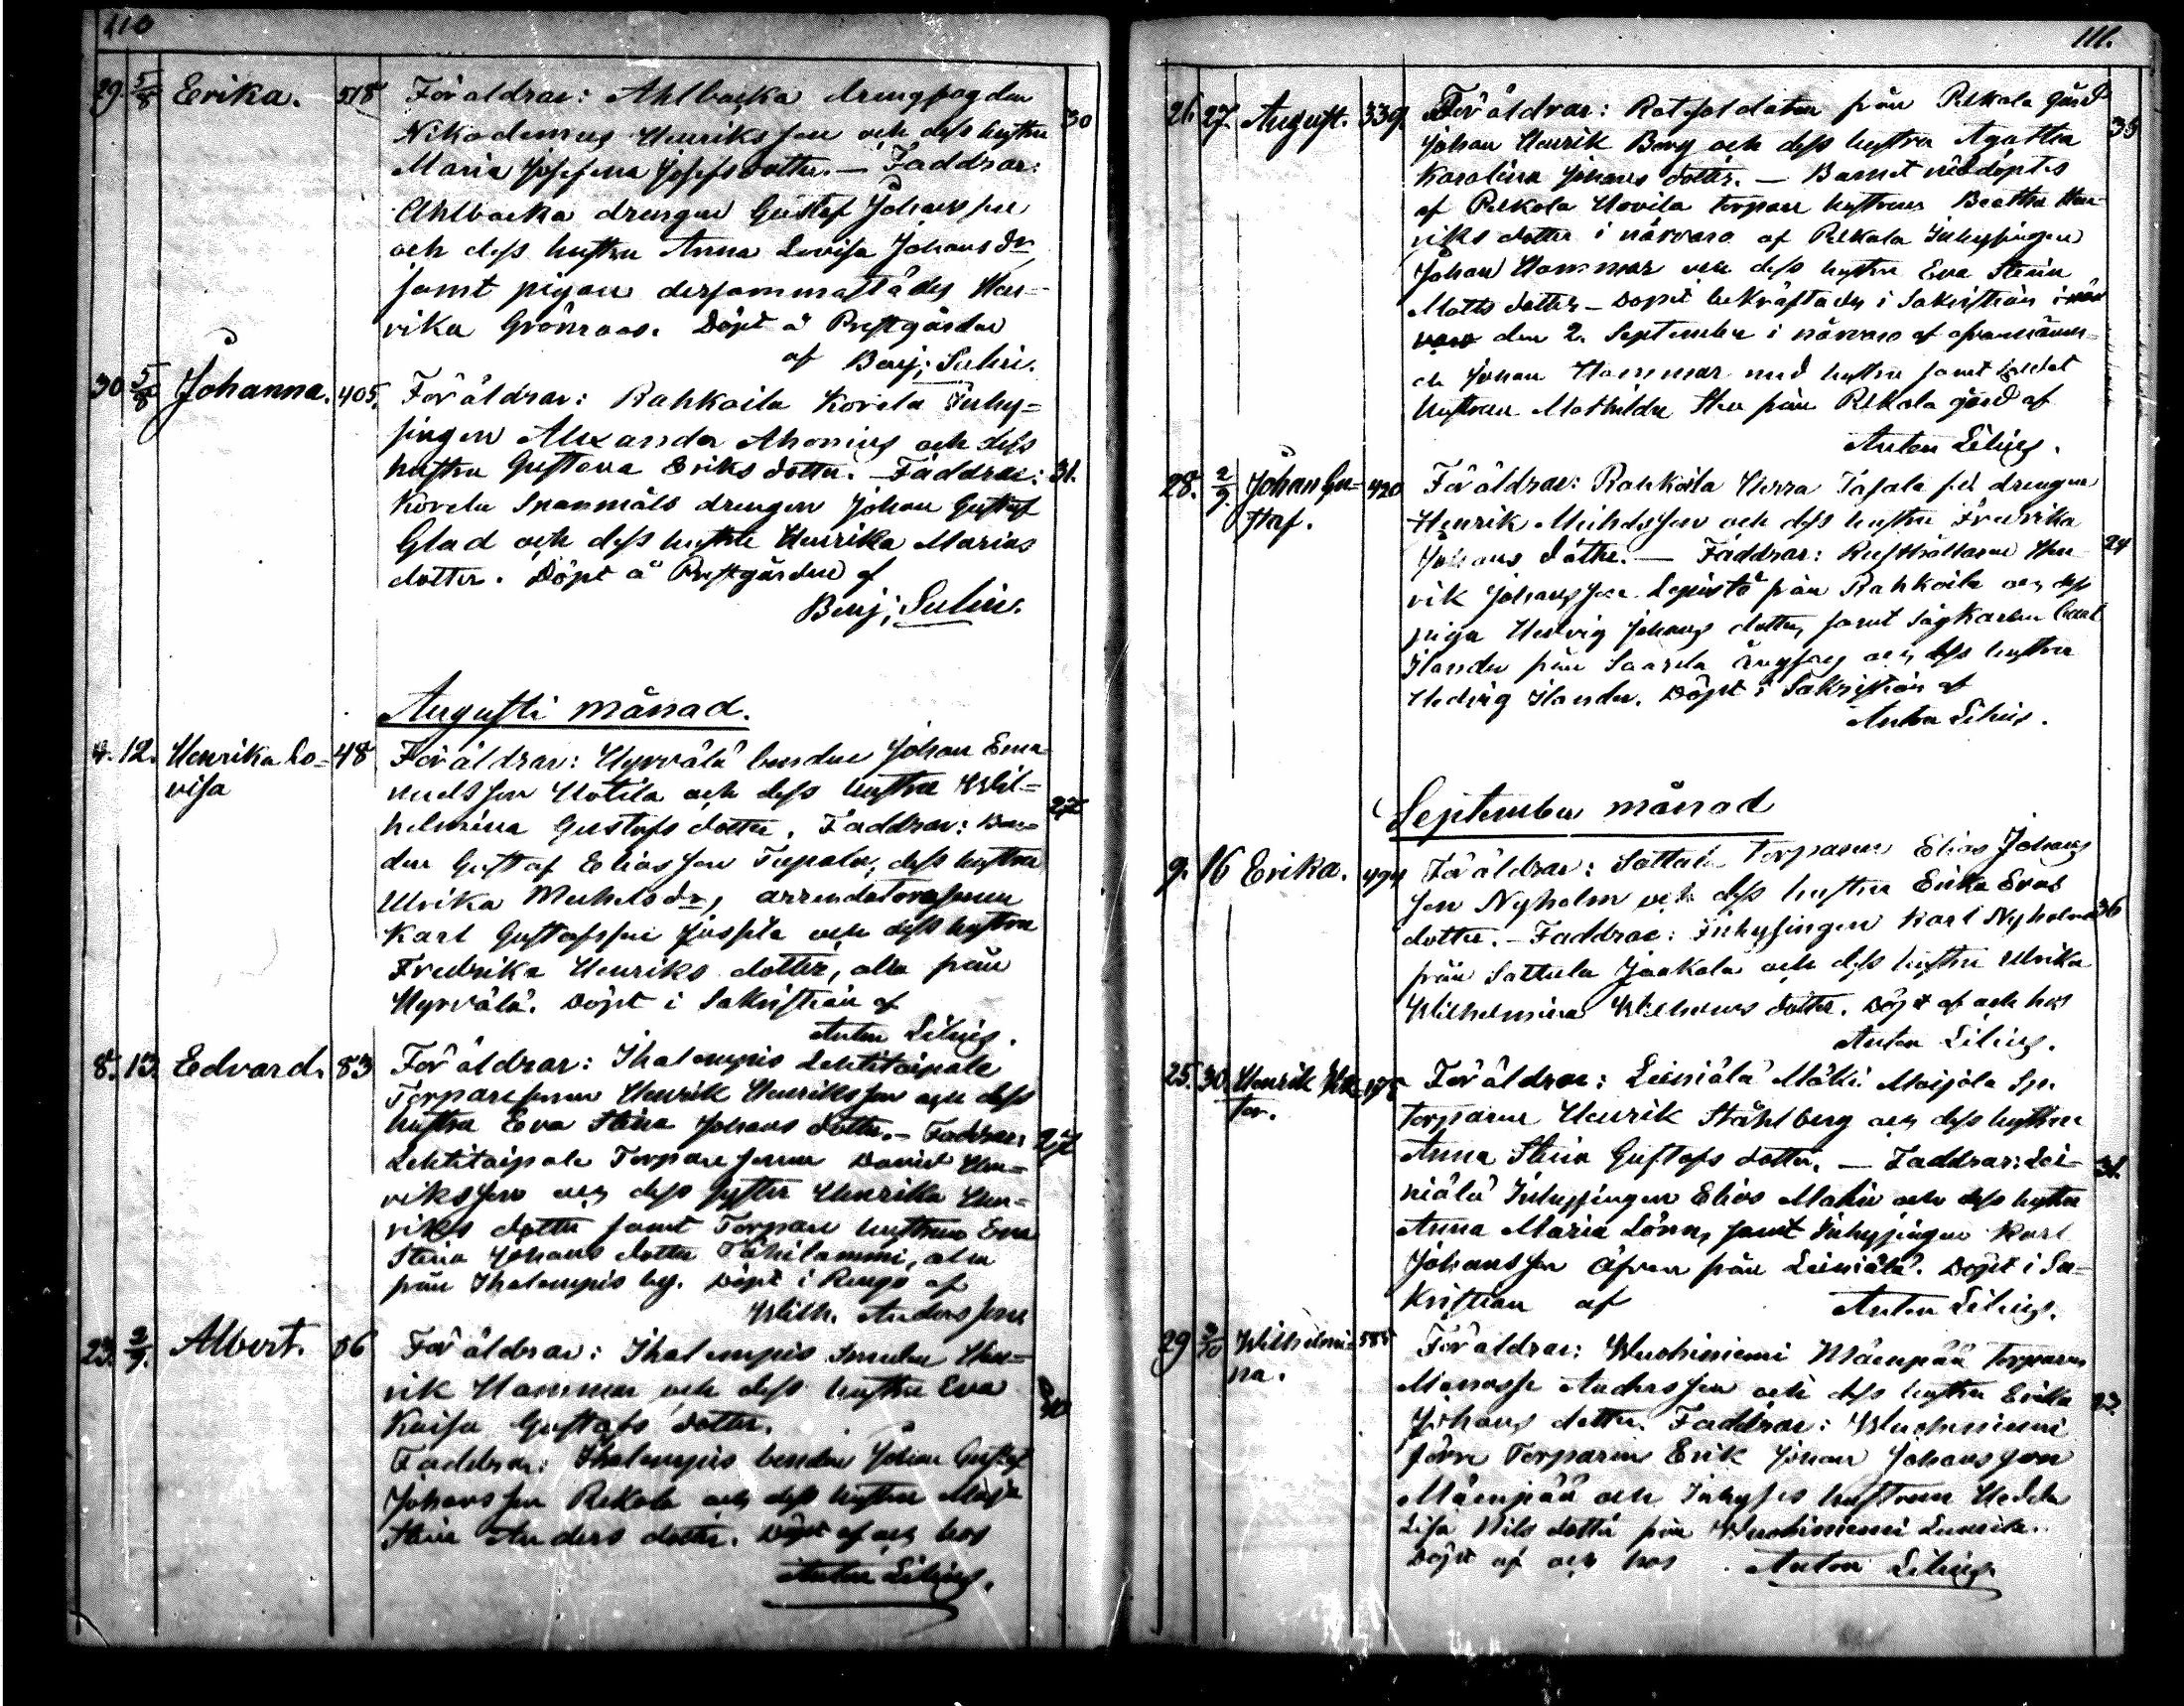 110
29. 5/8 Erika. 518 Föräldrar: Ahlbacka drengpogden
Nikodemus Henriksson och dess hustru 30
Maria Josefina Josefsdotter. — Faddrar:
Ahlbacka drengen Gustaf Johansson
och dess hustru Anna Lovisa Johans dr
samt pigan dersammastädes Hen-
rika Grönroos. Döpt å Prestgården
af Benj;
30 5/8 Johanna. 405. Föräldrar: Rahkoila Korela Inhy-
singen Alexander Ahonius och dess
hustru Gustava Eriks dotter. — Faddrar: 31.
Korela Spanmåls drengen Johan Gustaf
Glad och dess hustru Henrika Marias
dotter. Döpt å Prestgården af
Benj;
Augusti månad.
4. 12. Henrika Lo- 48 Föräldrar: Hyrvälä bonden Johan Ema-
visa nuelsson Uotila och dess hustru Wil-
helmina Gustafs dotter. Faddrar: Bon-
den Gustaf Eliasson Tupala, dess hustru
Ulrika Michelsdr,
Karl Gustafsson Jussila och dess hustru
Fredrika Henriks dotter, alla från
Hyrvälä. Döpt i Sakristian af
Anton Lilius.
8. 13. Edvard. 83 Föräldrar: Ihalempis Lehtitaipale
Torparesonen Henrik Henriksson och dess
hustru Eva Stina Johans dotter. — Faddrar:
Lehtitaipale Torpare sonen David Hen-
riksson och dess syster Henrika Hen-
riks dotter samt Torpare hustrun Eva
Stina Johans dotter Tähilammi, alla
från Ihalempis by. Döpt i Rengo af
Wilh. Andersson
23. 2/9. Albert. 86 Föräldrar: Ihalempis Smeden Hen-
rik Hammar och dess hustru Eva
Kaisa Gustafs dotter.
Faddrar: Ihalempis bonden Johan Gustaf
Johansson Rekola och dess hustru Maja
Stina Anders dotter. Döpt af och hos
Anton Lilius.
111.
26. 27. August. 339. Föräldrar: Rotesoldaten från Pelkola Gård
Johan Henrik Berg och dess hustru Agatha 35
Karolina Johans dotter. — Barnet nöddöptes
af Pelkola Uovila torpare hustrun Beatha Hen-
riks dotter i närvaro af Pelkola Inhysingen
Johan Hammar och dess hustru Eva Stina
Matts dotter — Dopet bekräftades i Sakristian
den 2. September i närvaro af
Johan Hammar med hustru samt Soldat
hustrun Mathilda från Pelkola gård af
Anton Lilius.
28. 2/9. Johan Gu- 420 Föräldrar: Rahkoila drengen
staf. Henrik Michelsson och dess hustru Fredrika
Johans dotter. — Faddrar: Rusthållaren Hen- 24
rik Johansson Lepistö från Rahkoila och dess
piga Hedvig Johans dotter, samt Sågkarlen Carl
Ilander från Saarela ångsåg och dess hustru
Hedvig Ilander. Döpt i Sakristian af
Anton Lilius.
September månad
9. 16 Erika. 494 Föräldrar: Sattula Torparen Elias Johans
son Nyholm och dess hustru Erika Evas
dotter. — Faddrar: Inhysingen Karl Nyholm 36
från Sattula Jaakola och dess hustru Ulrika
Wilhelmina Wilhelms dotter. Döpt af och hos
Anton Lilius.
25. 30 Henrik Vik- Föräldrar: Leiniälä Mäki Maijala Sp.
tor. torparen Henrik Ståhlberg och dess hustru
Anna Stina Gustafs dotter. — Faddrar: Lei- 31.
niälä Inhysingen Elias Malin och dess hustru
Anna Maria Lönn, samt Inhysingen Karl
Johansson äfven från Leiniälä. Döpt i Sa-
kristian af Anton Lilius.
29 Wilhelmi- 585 Föräldrar: Wuohiniemi Mäenpää Torparen
na. Manasse Andersson och dess hustru Erika
Johans dotter. Faddrar: Wuohiniemi
förra Torparen Erik Johan Johansson
Mäenpää och Inhyses hustrun Hedda
Lisa Nils dotter från Wuohiniemi
Döpt af och hos Anton Lilius